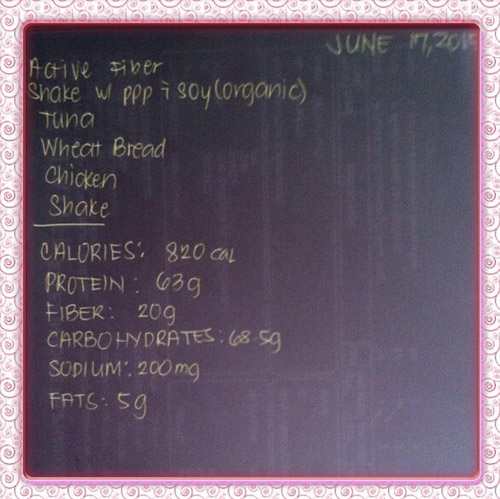 JUNE 17, 201
Active Fiber
Shake w/ ppp i soy (organic)
Tuna
Wheat Bread
Chicken
Shake
CALORIES: 820 cal
PROTEIN: 63g
FIBER: 20g
CARBOHYDRATES: 68.5g
SODIUM: 200mg
FATS: 5g